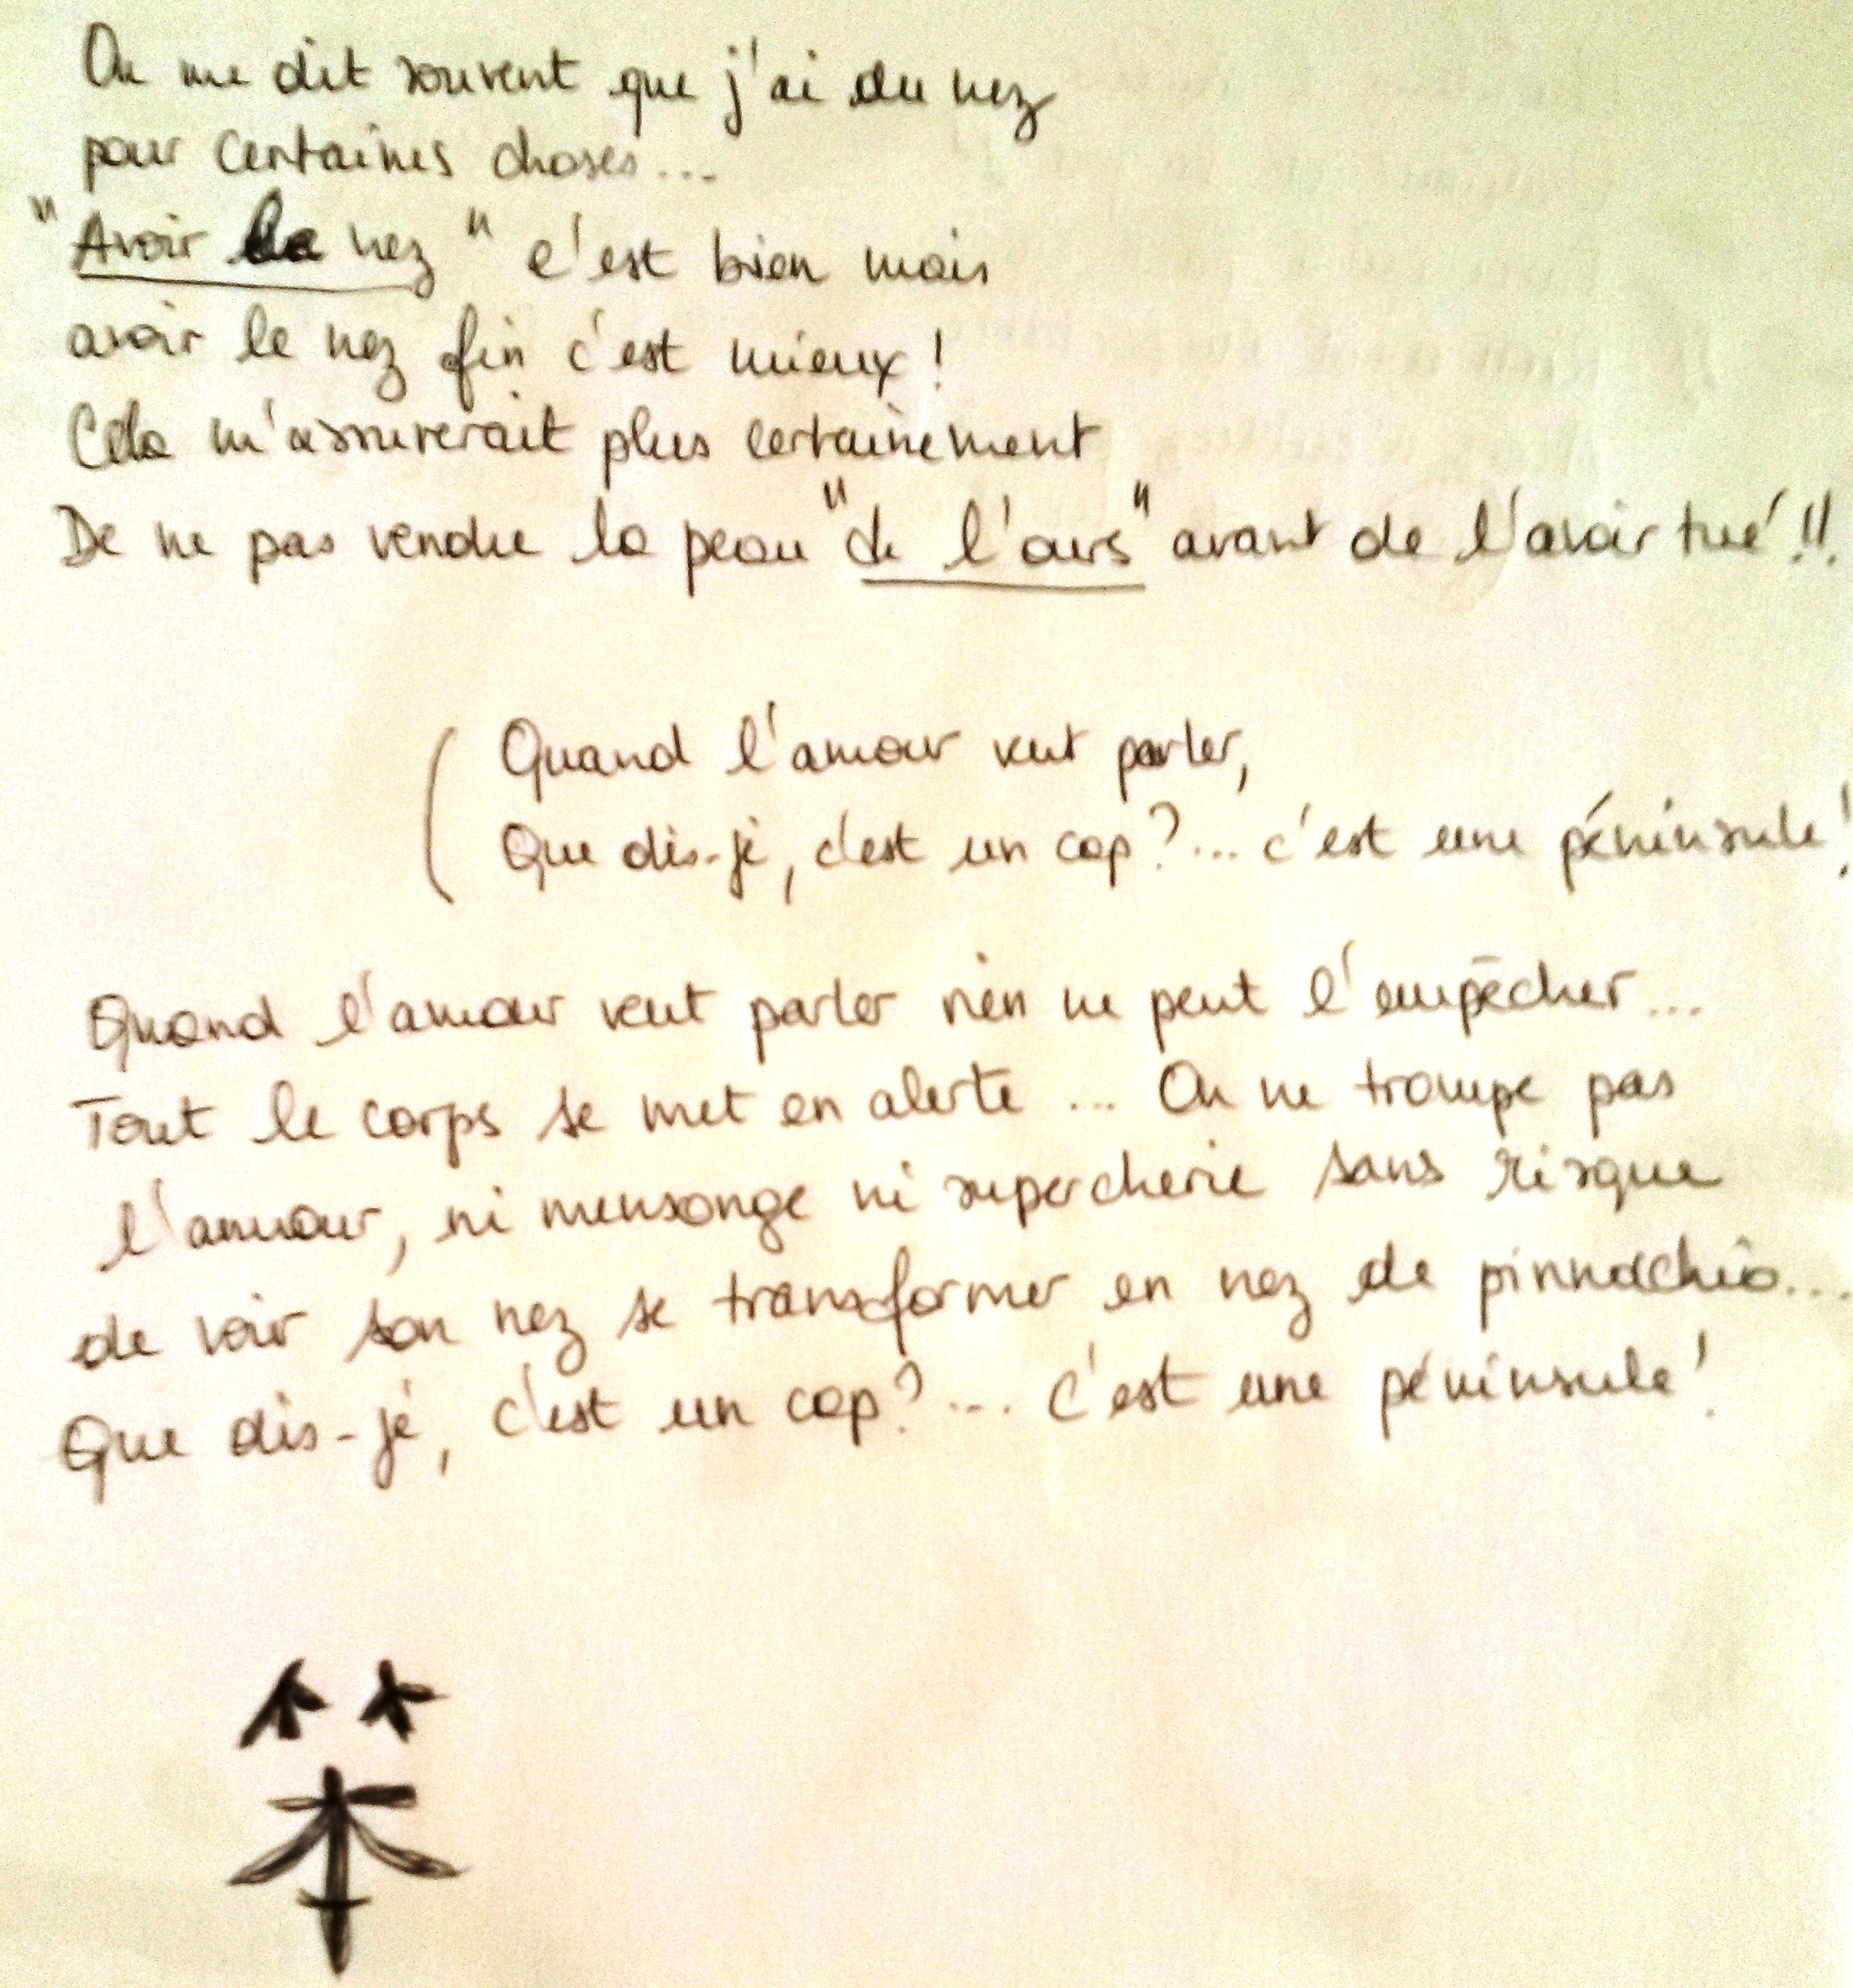 On me dit souvent que j'ai du nez
pour certaines choses...
"Avoir le nez" c'est bien mais
avoir le nez fin c'est mieux !
Cela m'assurerait plus certainement
De ne pas vendre la peau "de l'ours" avant de l'avoir tué !!.
( Quand l'amour veut parler,
Que dis-je, c'est un cap ?... c'est une péninsule !
Quand l'amour veut parler rien ne peut l'empêcher...
Tout le corps se met en alerte ... On ne trompe pas
l'amour, ni mensonge ni supercherie sans risque
de voir son nez se transformer en nez de pinnochio...
Que dis-je, c'est un cap ?... c'est une péninsule !
笨